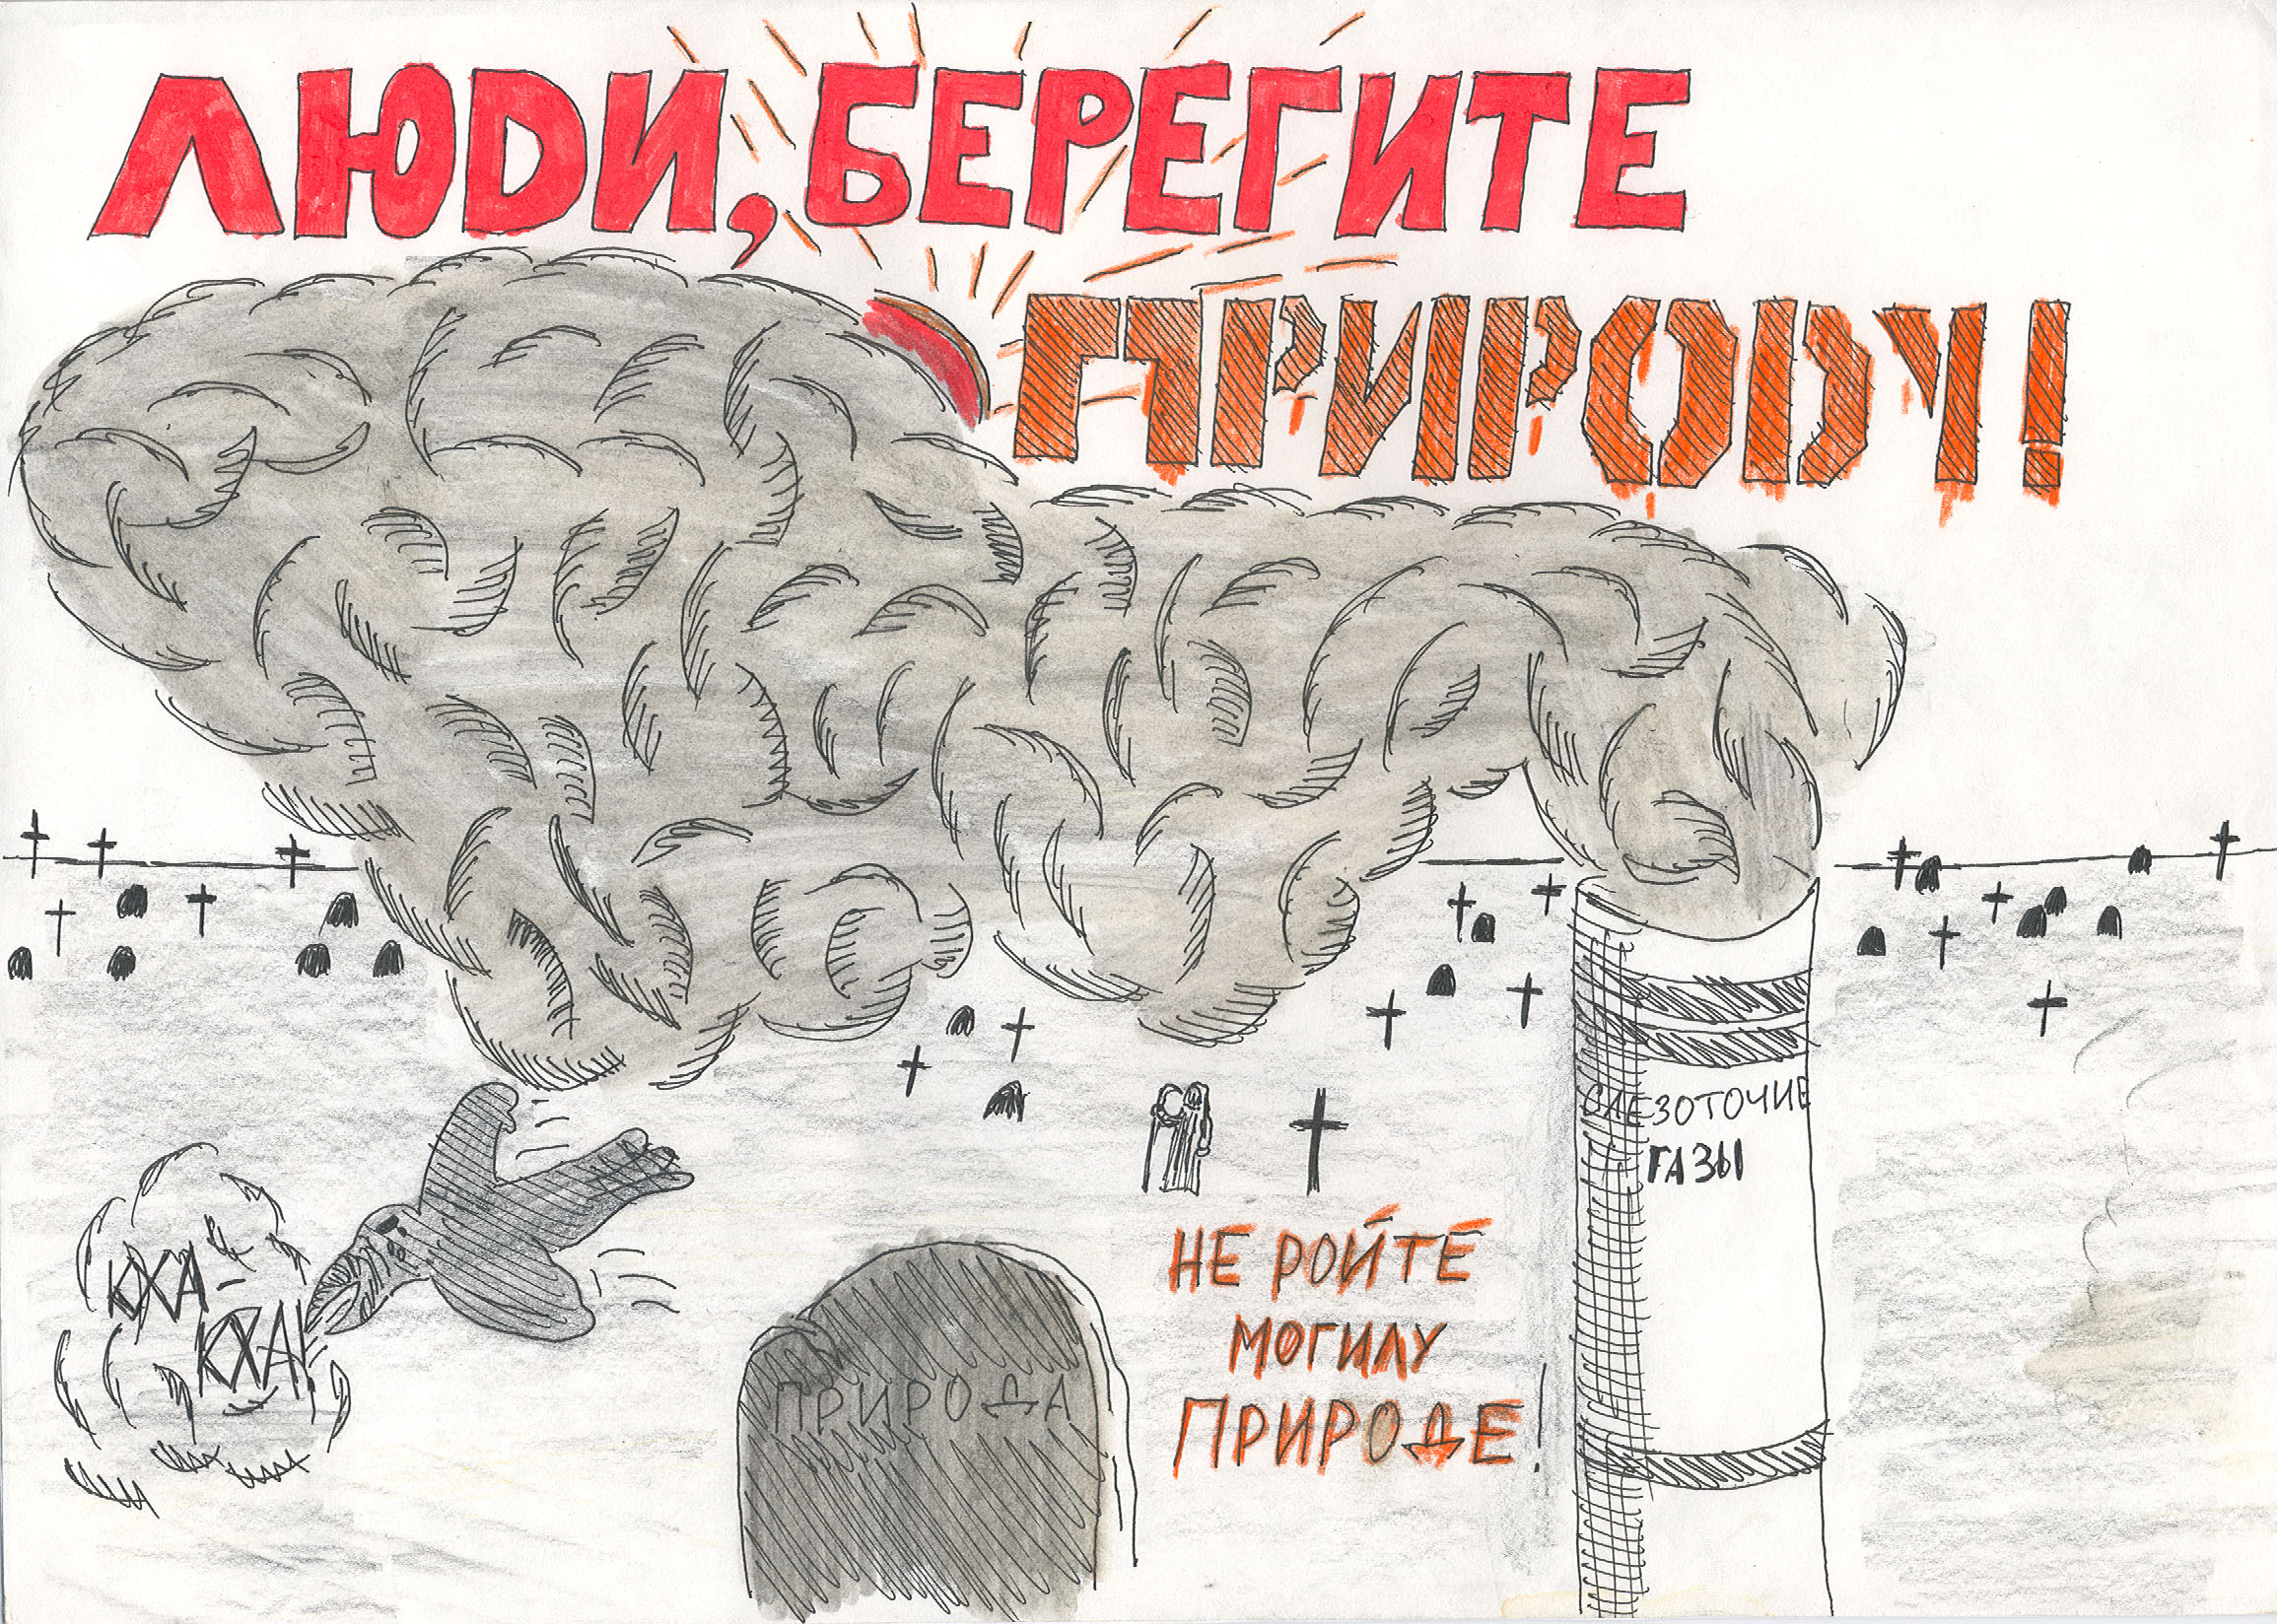 ЛЮДИ, БЕРЕГИТЕ
ПРИРОДУ!
СЛЕЗОТОЧИЕ
ГАЗЫ
КХА-
КХА!
ПРИРОДА
НЕ РОЙТЕ
МОГИЛУ
ПРИРОДЕ!